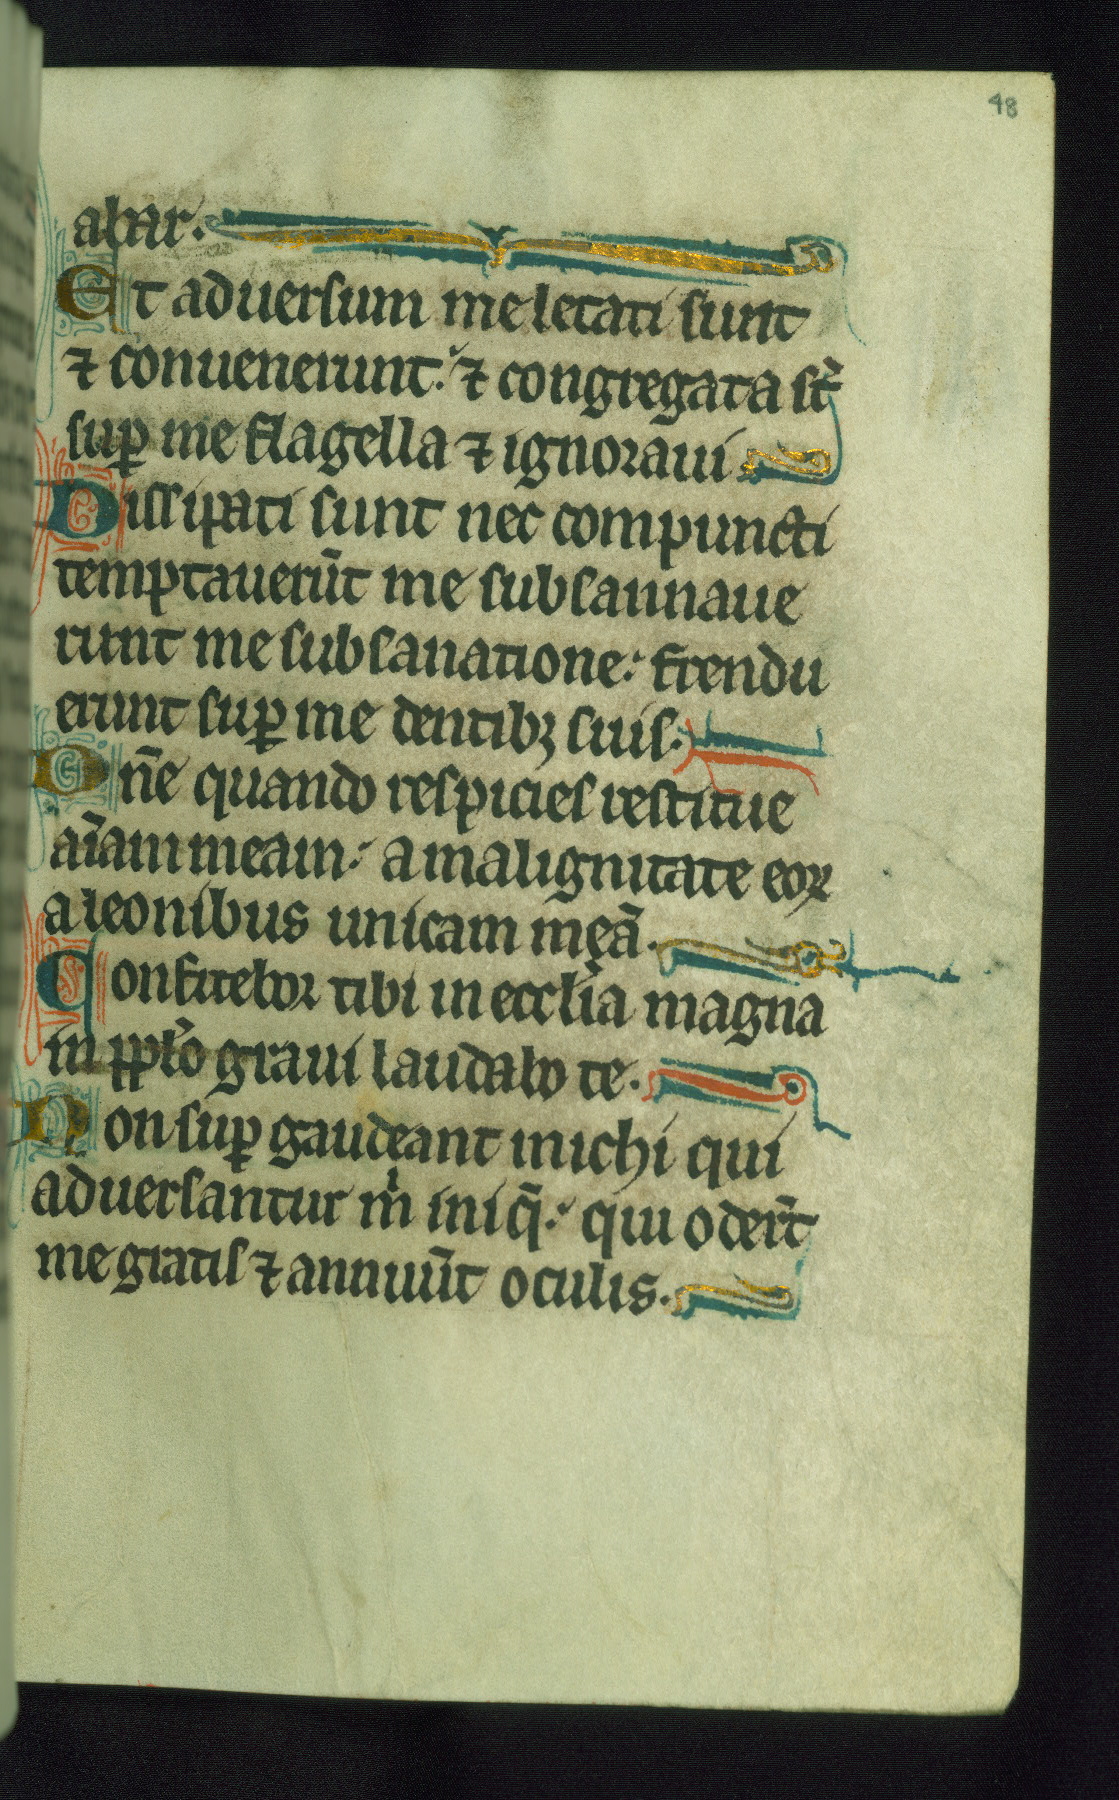 48
abar.
Et aduersum me letati sunt
⁊ conuenerunt. ⁊ congregata st̄
sup̱ me flagella ⁊ ignoraui
Dissipati sunt nec compuncti
temptauerūt me subsannaue
runt me subsanatione. frendu
erunt sup̱ me dentibꝫ suis.
Dn̄e quando respicies restitue
aīam meam. a malignitate eoꝝ
a leonibus unicam meā.
Confitebor tibi in eccl̄ia magna
in pp̄lo graui laudabo te.
Non sup̱ gaudeant michi qui
aduersantur m̄ iniq̄. qui oder̄t
me gratis ⁊ annuūt oculis.